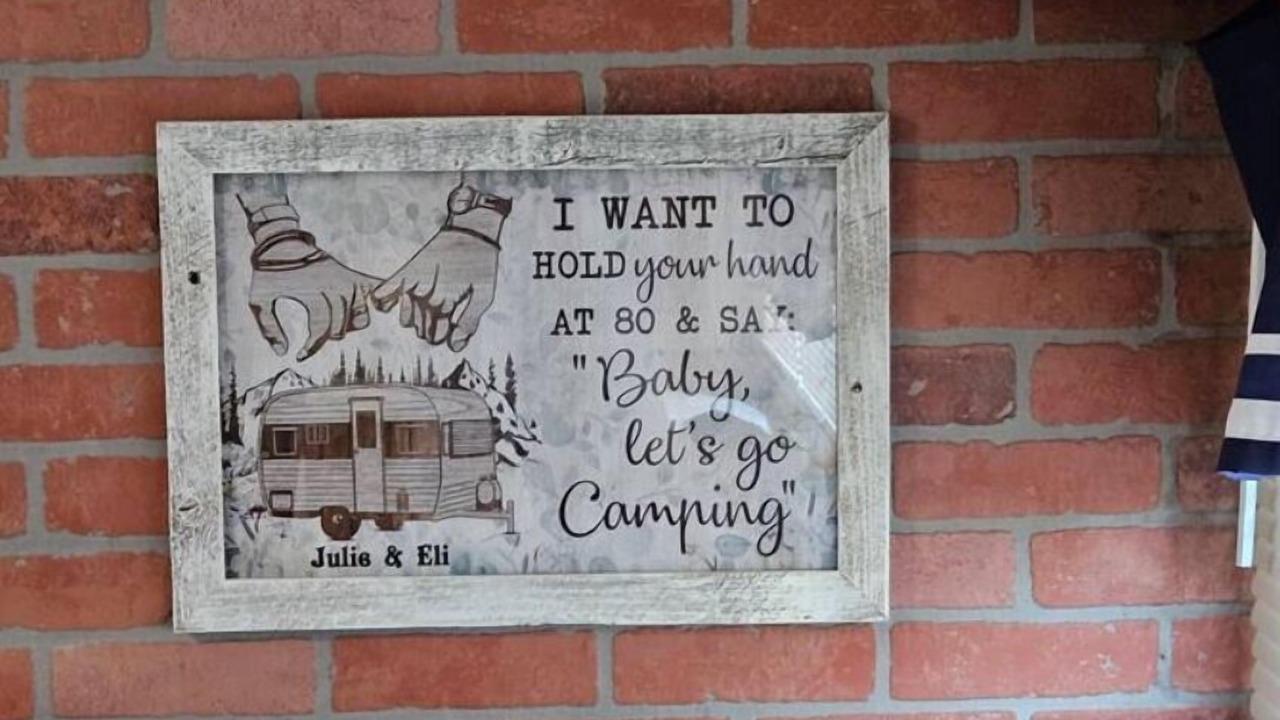 I WANT TO
HOLD your hand
AT 80 & SAY:
"Baby,
let's go
Camping"
Julie & Eli